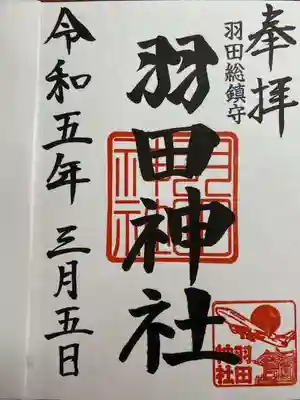 奉拝
羽田総鎮守
羽田神社
令和五年 三月五日
羽田神社
羽田
神社